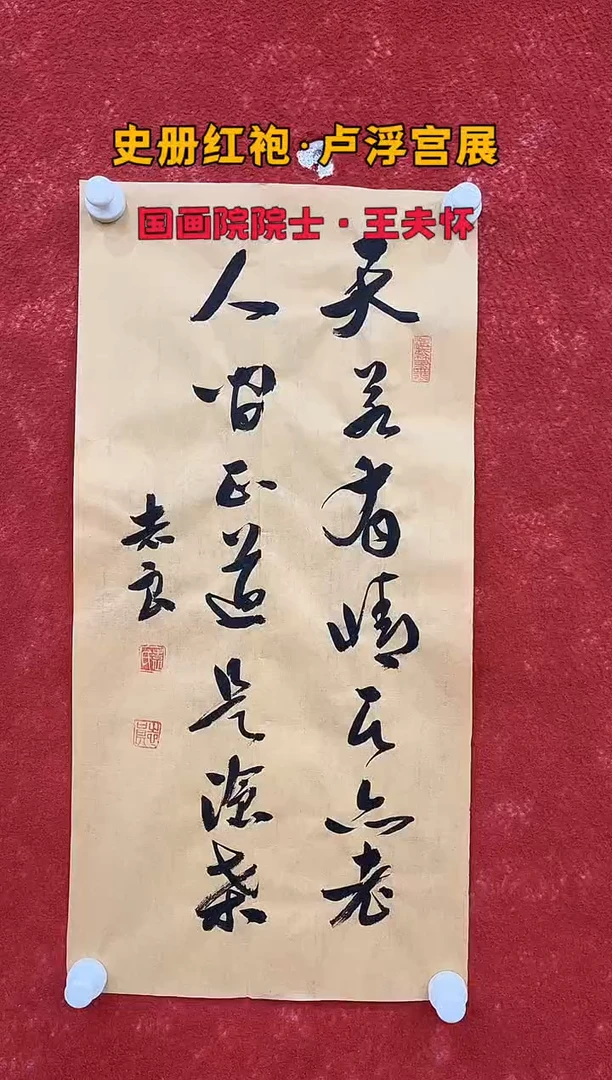 史册红袍·卢浮宫展
国画院院士·王夫怀
天若有情天亦老
人间正道是沧桑
志良